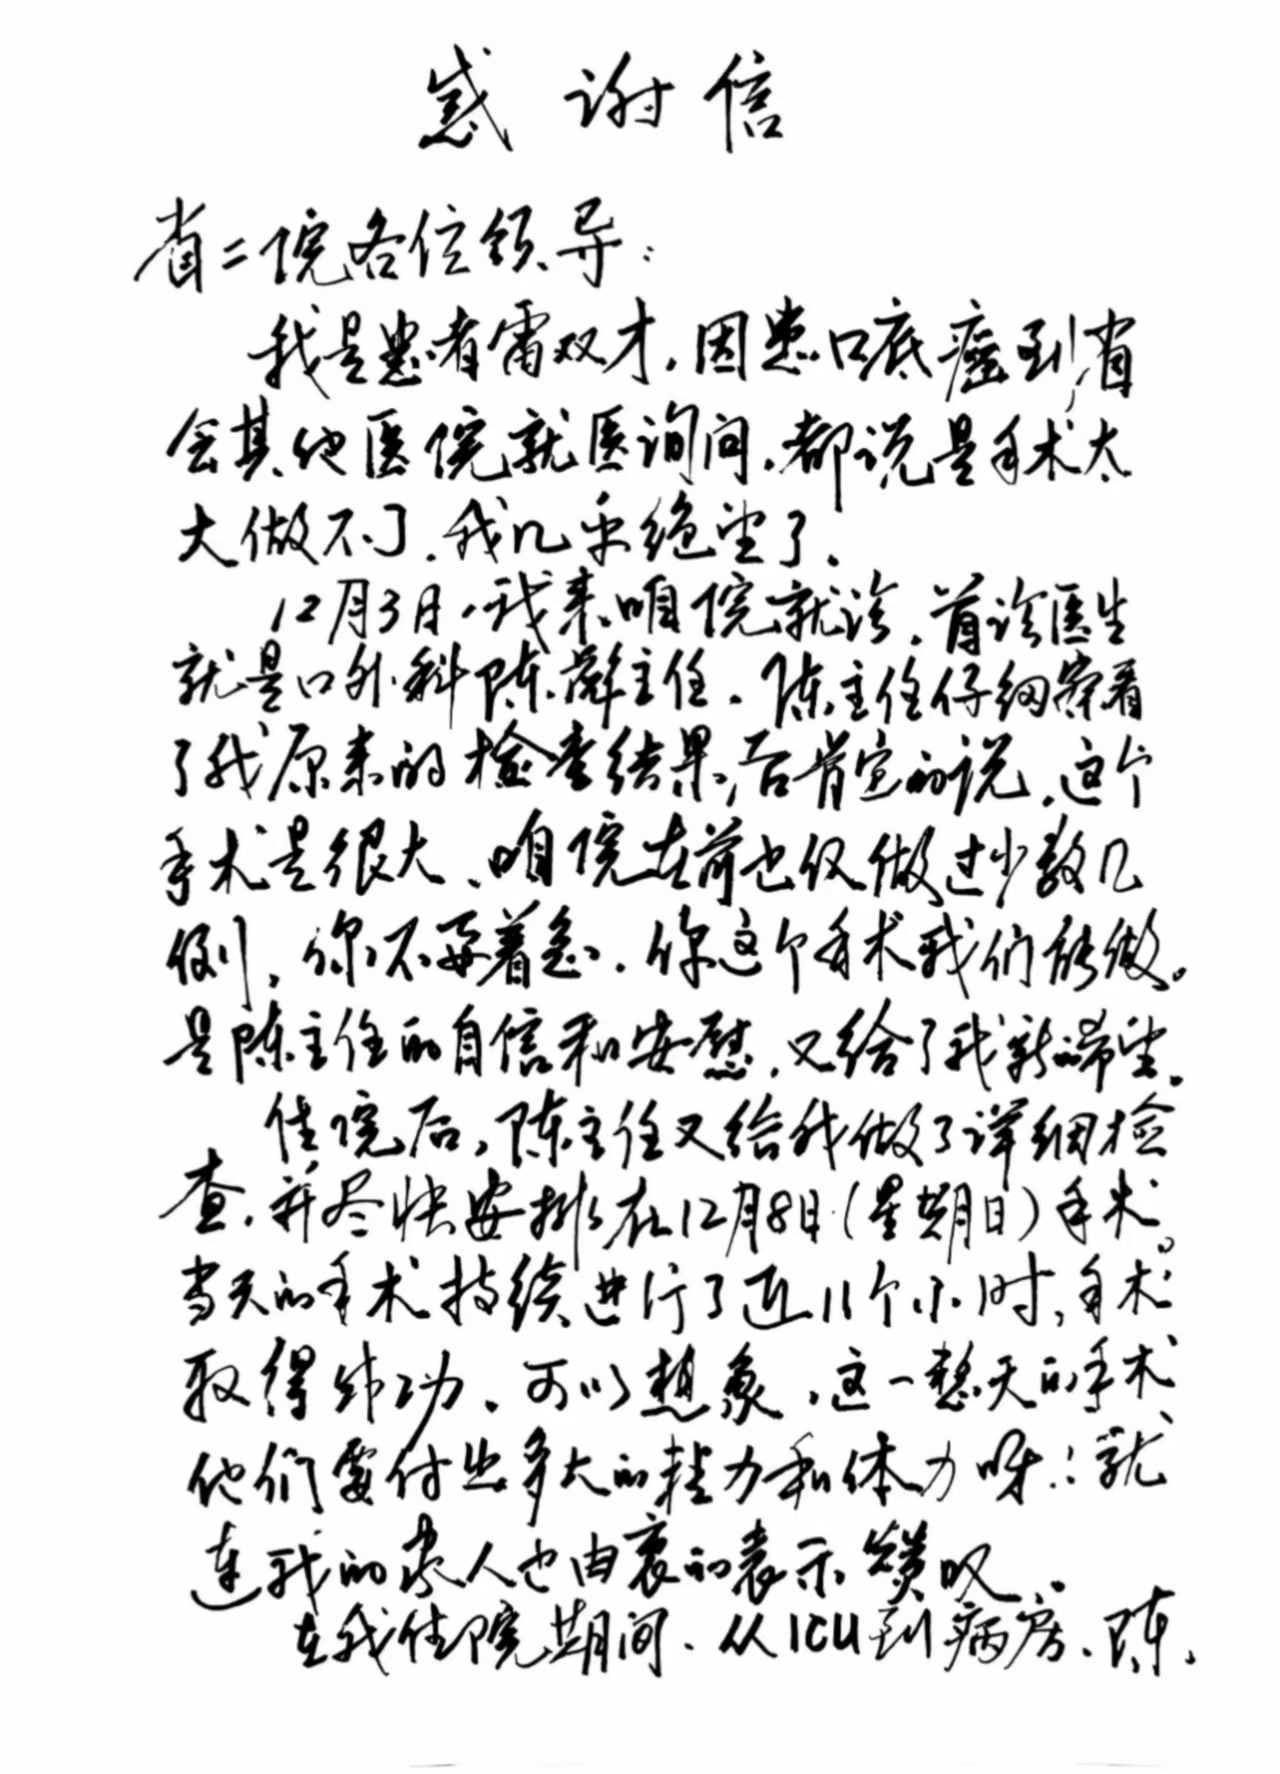 感谢信
省二院各位领导:
我是患者雷双才,因患口底癌到省
会其他医院就医询问,都说是手术太
大做不了.我几乎绝望了.
12月3日,我来咱院就诊.首诊医生
就是口外科陈彦主任.陈主任仔细察看
了我原来的检查结果,后肯定的说,这个
手术是很大、咱院在前也仅做过少数几
例,你不要着急.你这个手术我们能做。
是陈主任的自信和安慰,又给了我新的希望.
住院后,陈主任又给我做了详细检
查.并尽快安排在12月8日(星期日)手术。
当天的手术持续进行了近11个小时,手术
取得成功.可以想象,这一整天的手术
他们要付出多大的精力和体力呀!就
连我的家人也由衷的表示赞叹.
在我住院期间.从ICU到病房、陈